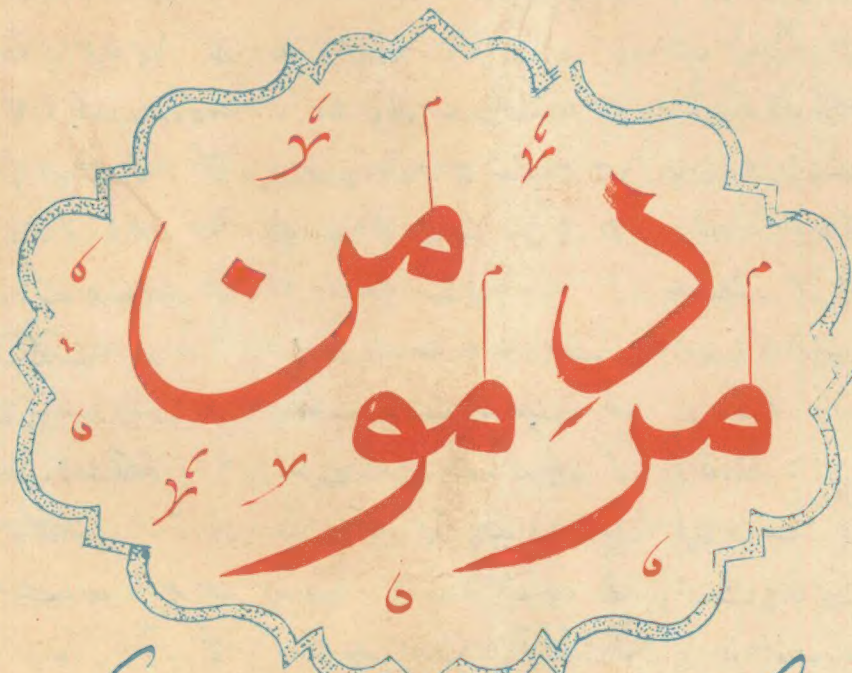 مردِ مومن